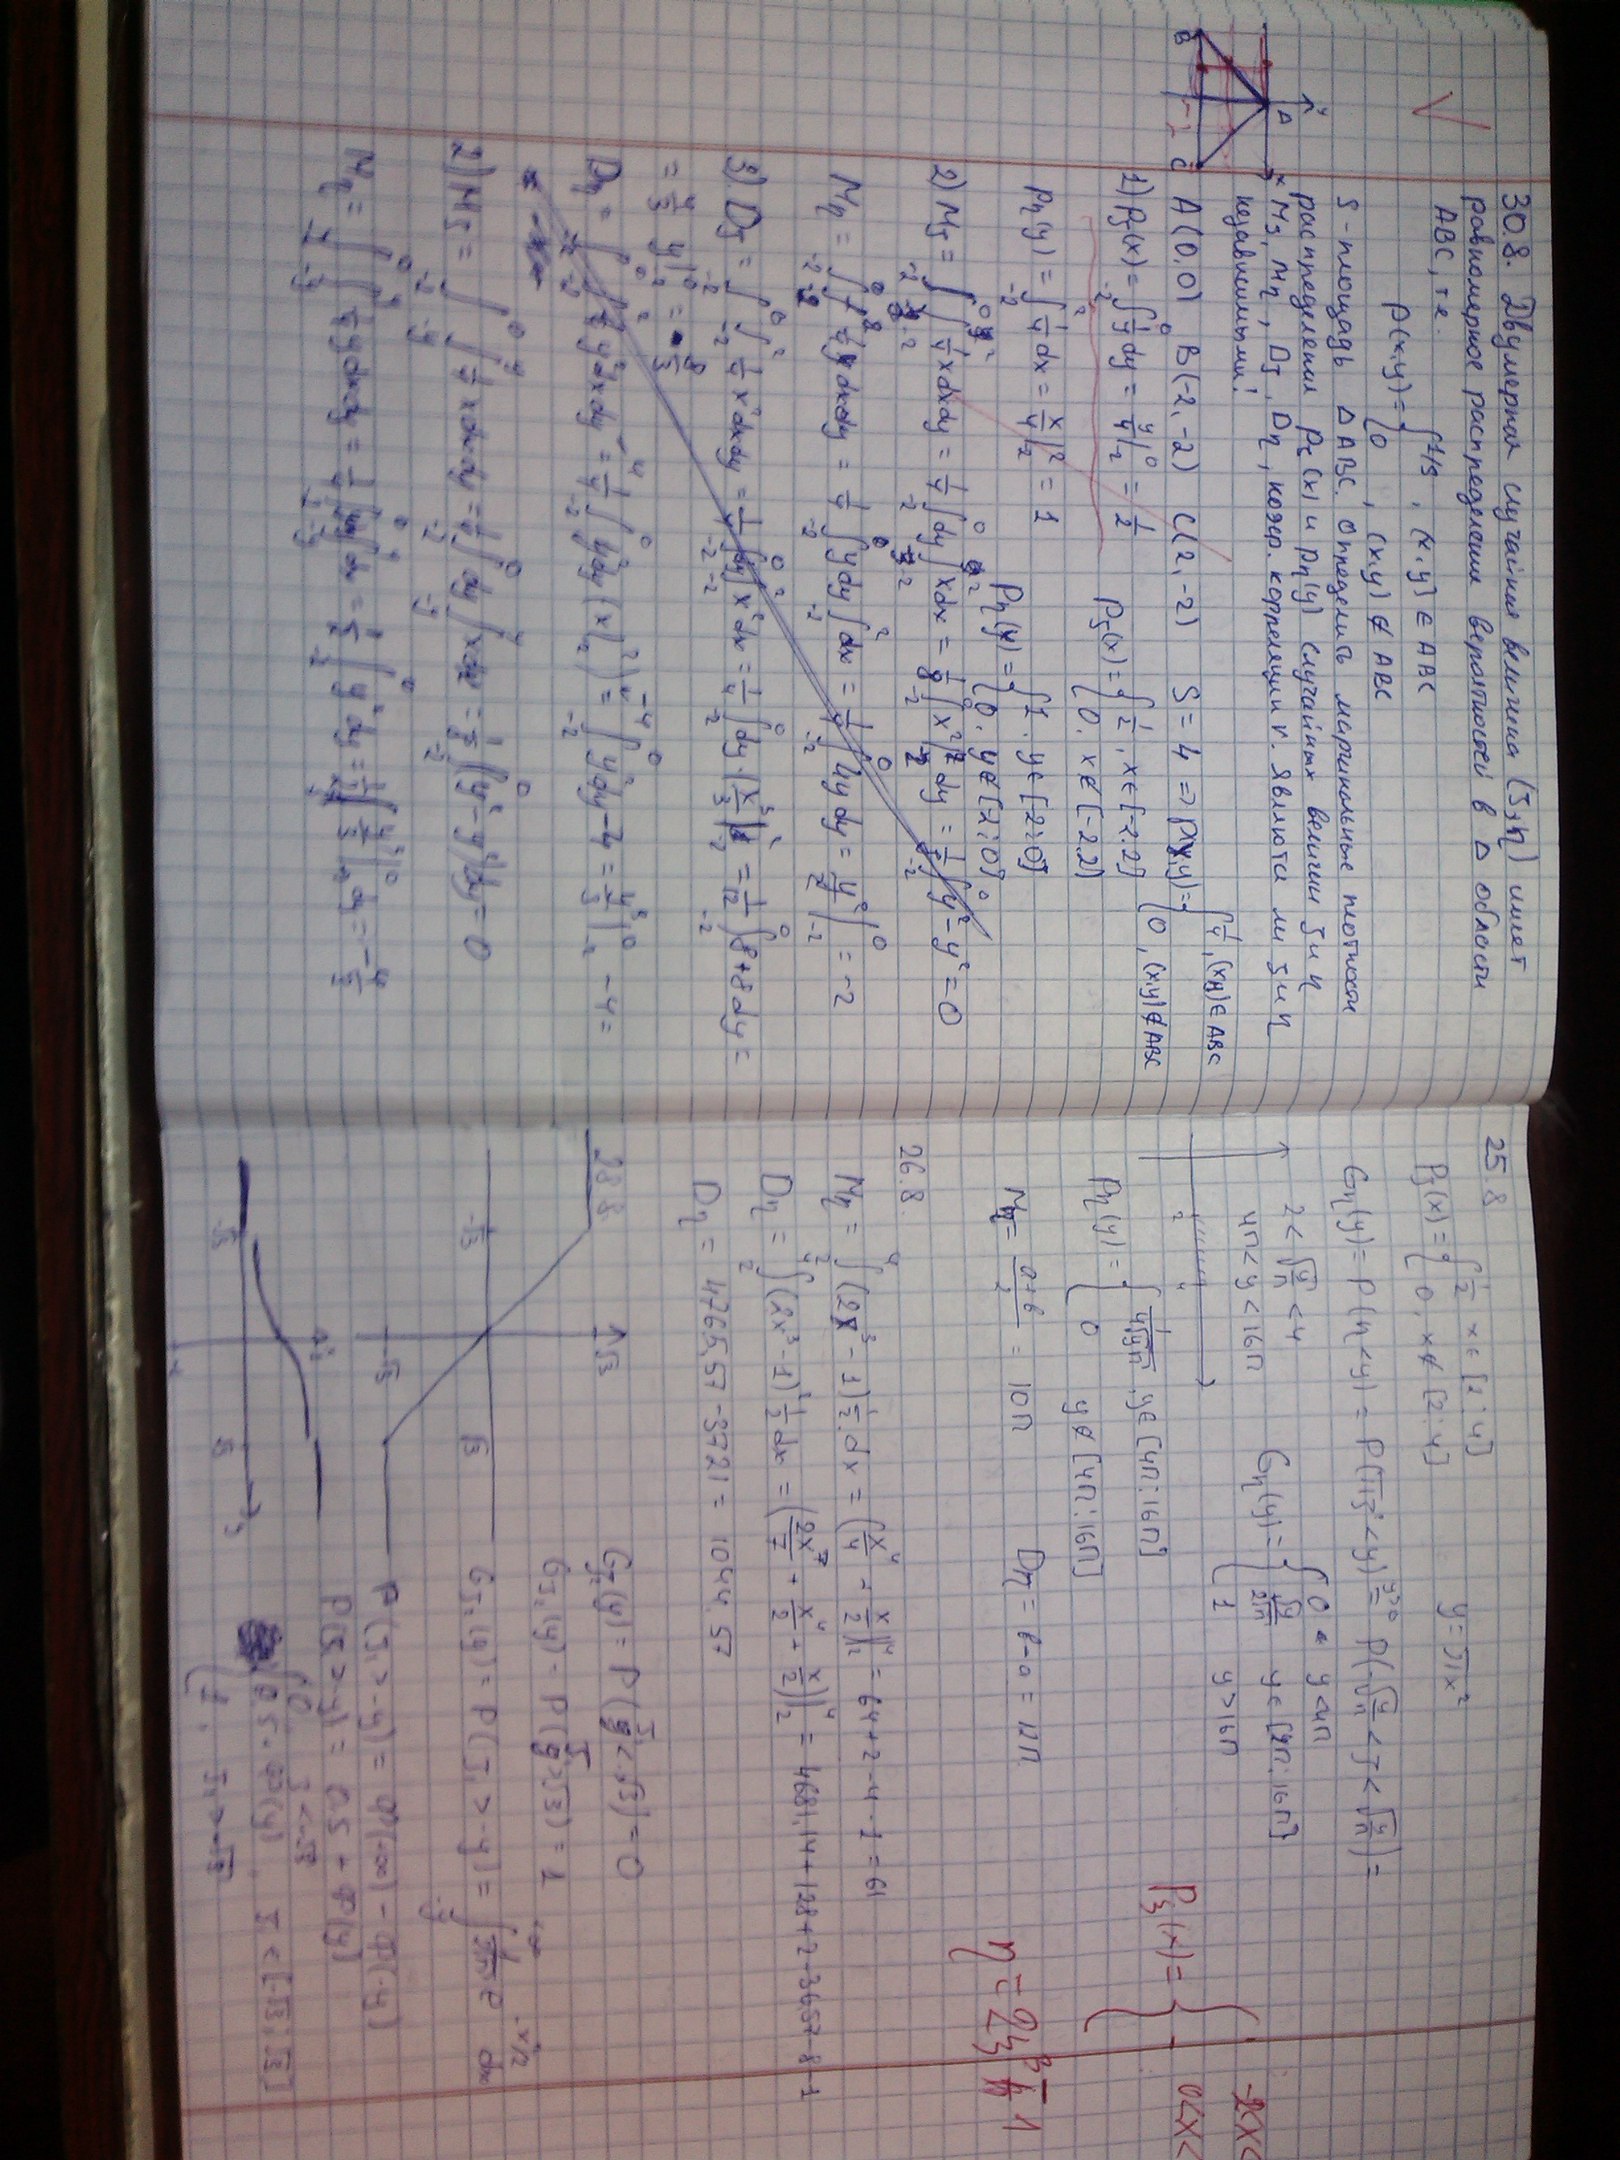 30.8. Двумерная случайная величина (ξ,η) имеет
равномерное распределения вероятностей в Δ области
ABC, т.е.
p(x,y) = { 1/S , (x,y) ∈ ABC
0 , (x,y) ∉ ABC
S - площадь ΔABC. Определить маргинальные плотности
распределения pξ(x) и pη(y) случайных величин ξ и η
Mξ, Mη, Dξ, Dη, коэф. корреляции r. Являются ли ξ и η
независимыми!
A
B
C
-2
A(0,0) B(-2,-2) C(2,-2) S = 4 => p(x,y) = { 1/4 , (x,y) ∈ ABC
0 , (x,y) ∉ ABC
1) pξ(x) = ∫_{-2}^{0} 1/4 dy = y/4 |_{-2}^{0} = 1/2
pξ(x) = { 1/2 , x ∈ [-2;2]
0, x ∉ [-2;2]
pη(y) = ∫_{-2}^{2} 1/4 dx = x/4 |_{-2}^{2} = 1
pη(y) = { 1, y ∈ [-2;0]
0, y ∉ [-2;0]
2) Mξ = ∫ ∫ 1/4 x dx dy = 1/4 ∫_{-2}^{0} dy ∫ x dx = 1/8 ∫_{-2}^{0} x² |_{-2}^{2} dy = ∫_{-2}^{0} y² - y² = 0
Mη = ∫_{-2}^{0} ∫ 1/4 y dx dy = 1/4 ∫_{-2}^{0} y dy ∫_{-2}^{2} dx = 1/4 ∫_{-2}^{0} 4y dy = y²/2 |_{-2}^{0} = -2
3) Dξ = ∫_{-2}^{0} ∫_{-2}^{2} 1/4 x² dx dy = 1/4 ∫_{-2}^{0} dy ∫_{-2}^{2} x² dx = 1/4 ∫_{-2}^{0} dy · (x³/3) |_{-2}^{2} = 1/12 ∫_{-2}^{0} 8+8 dy =
Dη = ∫ ∫ y² dx dy - 4 = 1/4 ∫_{-2}^{0} y² dy (x |_{-2}^{2}) - 4 = ∫_{-2}^{0} y² dy - 4 = y³/3 |_{-2}^{0} - 4 =
2) Mξ = ∫_{-2}^{0} ∫_{-y}^{y} 1/4 x dx dy = 1/4 ∫_{-2}^{0} dy ∫_{-y}^{y} x dx = 1/8 ∫_{-2}^{0} (y² - y²) dy = 0
Mη = ∫_{-2}^{0} ∫_{-y}^{y} 1/4 y dx dy =
25.8
pξ(x) = { 1/2 x ∈ [2;4]
0, x ∉ [2;4]
y = πx²
Gη(y) = P(η<y) = P(πξ²<y) =^{y>0} P(-√(y/π) < ξ < √(y/π)) =
2 < √(y/π) < 4
4π < y < 16π
Gη(y) = { 0 y<4π
√y/2√π y ∈ [2π;16π]
1 y>16π
2 4
pη(y) = { 1/(4√(yπ)) , y ∈ [4π;16π]
0 y ∉ [4π;16π]
Mη = (a+b)/2 = 10π Dη = b-a = 12π
Pξ(x) = {
-2<x<
0<x<
η = 2ξ³ - 1
26.8.
Mη = ∫_{2}^{4} (2x³ - 1) 1/2 dx = (x⁴/4 - x/2) |_{2}^{4} = 64+2-4-1 = 61
Dη = ∫_{2}^{4} (2x³-1)² 1/2 dx = (2x⁷/7 - x⁴/2 + x/2) |_{2}^{4} = 4681,14+128+2-36,57-8-1
Dη = 4765,57 - 3721 = 1044,57
28.8
√3
-√3
√3
-√3
Gξ₂(y) = P(ξ₁ < √3) = 0
Gξ₂(y) = P(ξ₁ > √3) = 1
Gξ₂(y) = P(ξ₁ > -y) = ∫_{-y} 1/√2π e^{-x²/2} dx
P(ξ₁ > -y) = Ф(-∞) - Ф(-y)
P(ξ₁ > -y) = 0.5 + Ф(y)
{ 0 , ξ < -√3
0.5 + Ф(y) , ξ ∈ [-√3; √3]
1 , ξ₁ > -√3